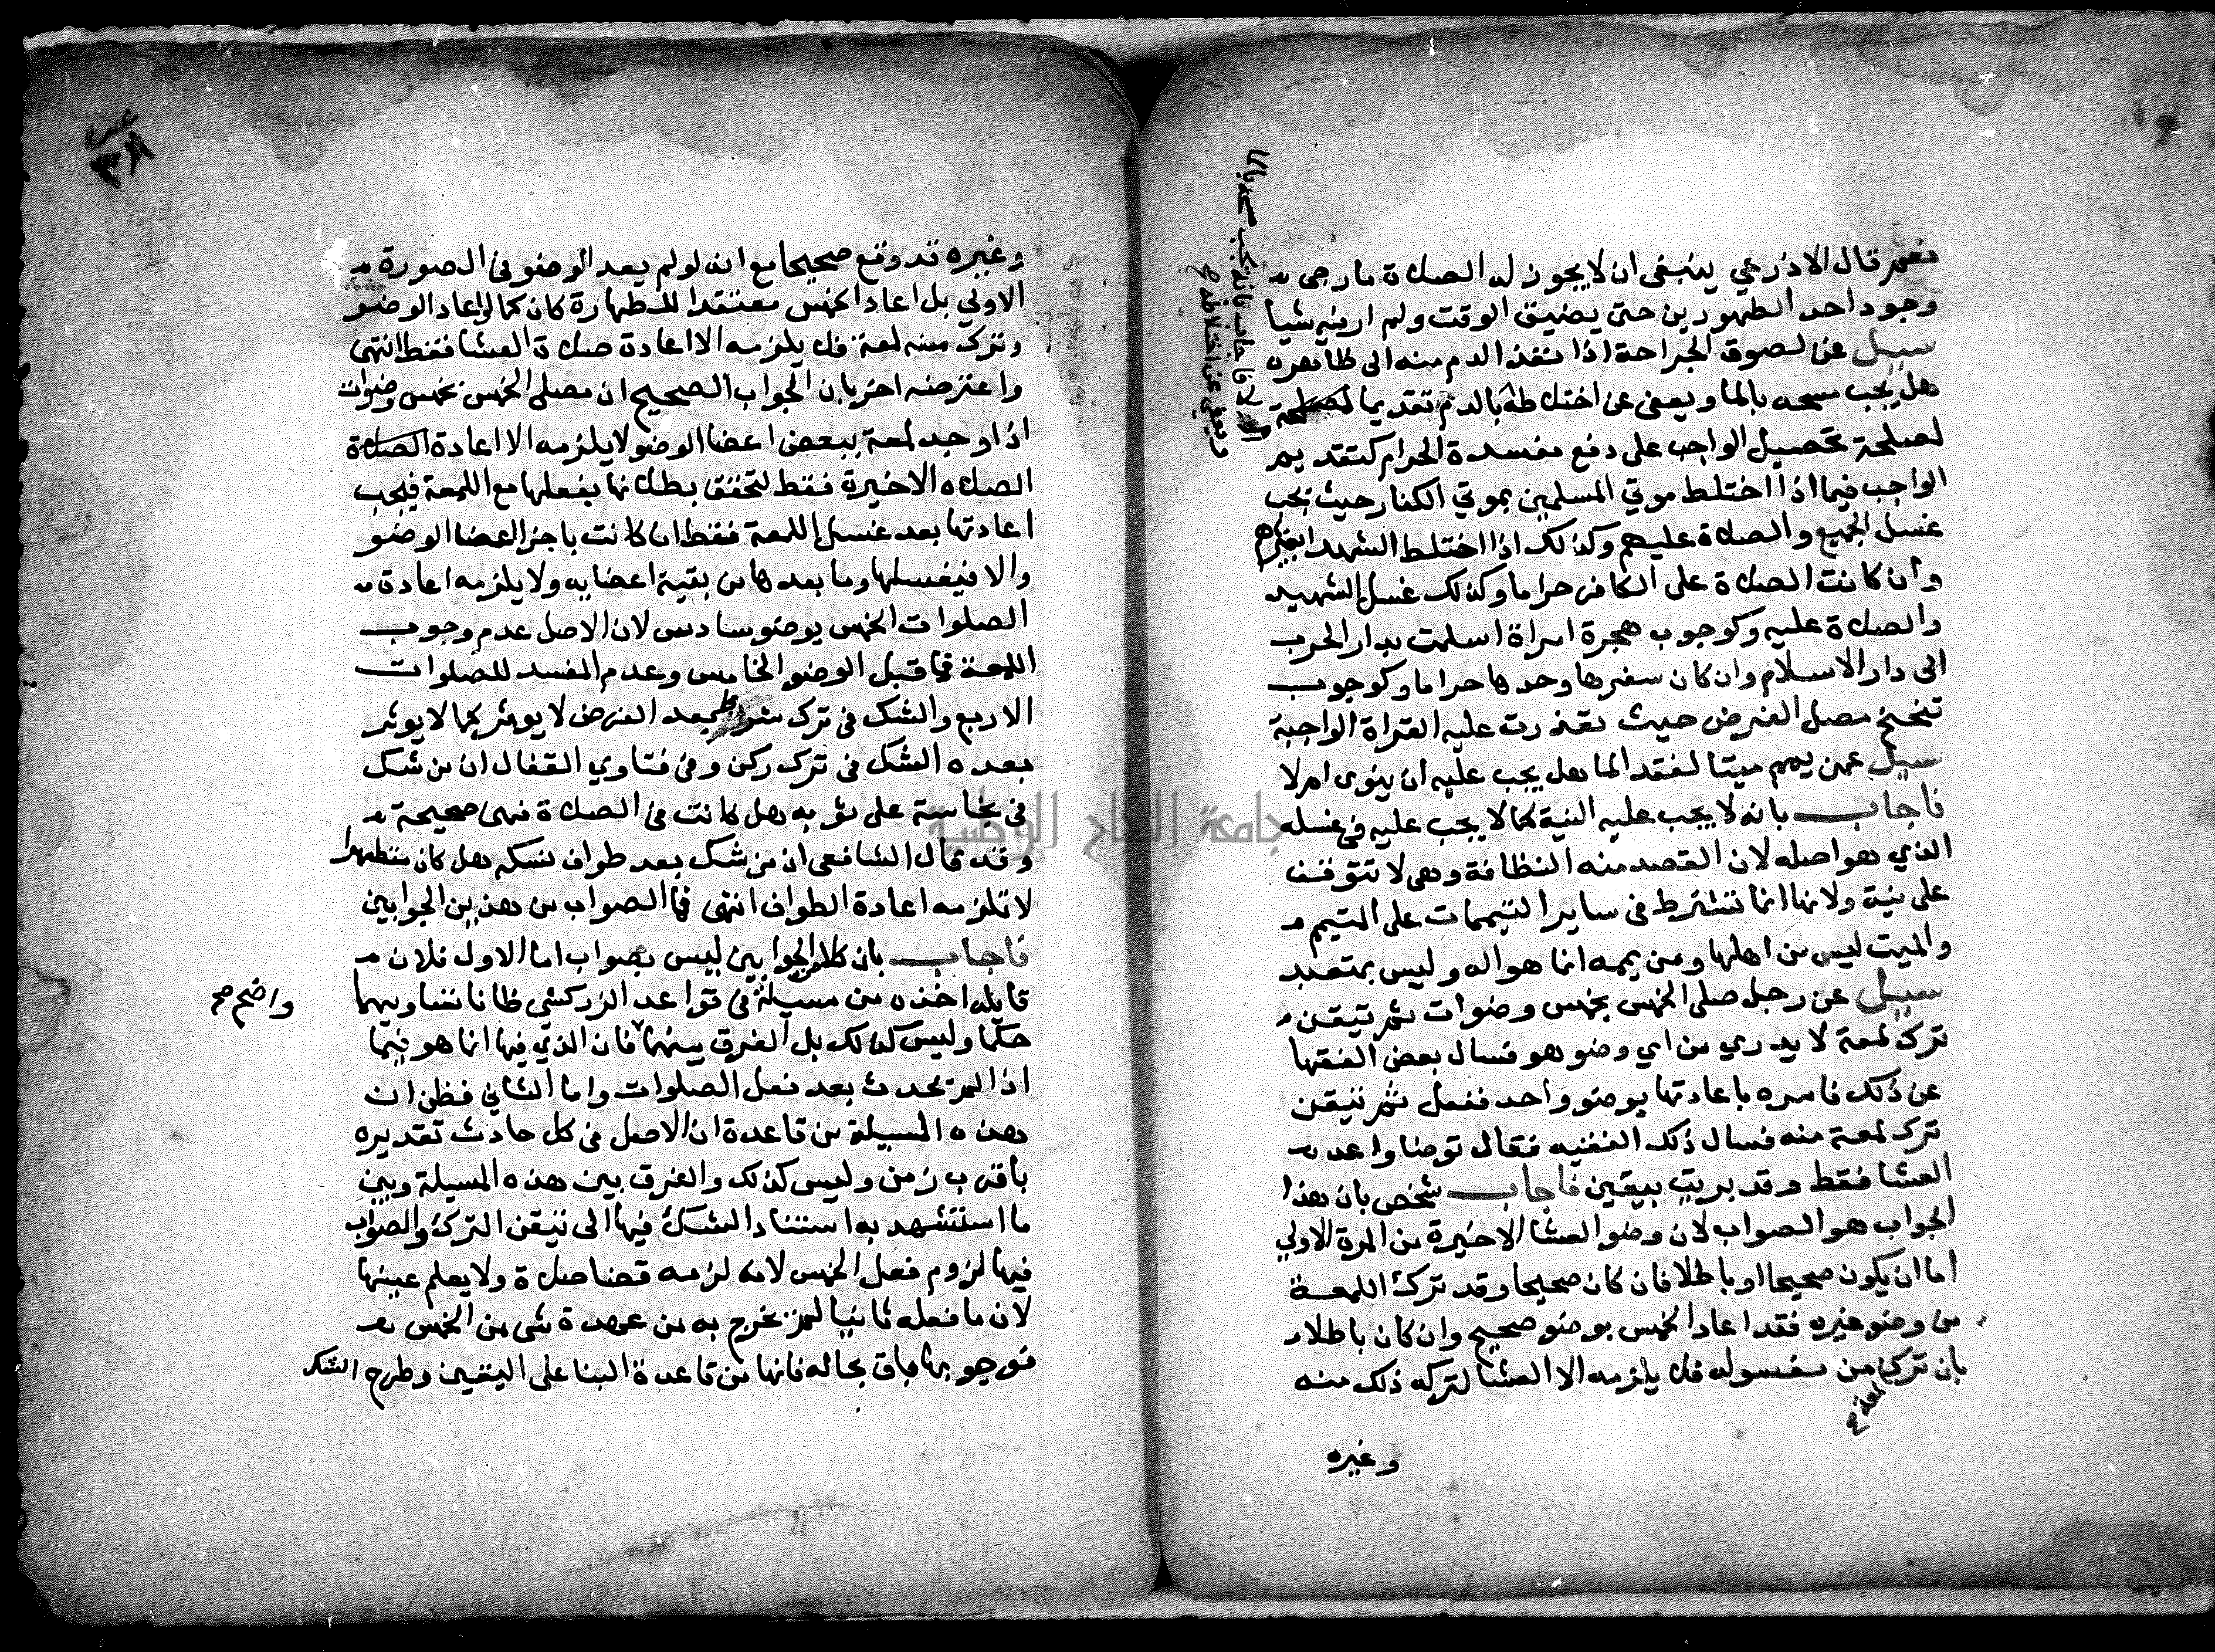 نعم قال الاذرعي ينبغي ان لا يجوز له الصلاة ما رجى
وجود احد الطهورين حتى يضيق الوقت ولم ار فيه شيا
سيل عن لصوق الجراحة اذا نفذ الدم منه الى ظاهره
هل يجب مسحه بالما ويعفى عن اختلاطه بالدم تقديما
لمصلحة تحصيل الواجب على دفع مفسدة الحرام كتقديم
الواجب فيما اذا اختلط موتي المسلمين بموتي الكفار حيث يجب
غسل الجميع والصلاة عليهم وكذلك اذا اختلط الشهدا بغيرهم
وان كانت الصلاة على الكافر حراما وكذلك غسل الشهيد
والصلاة عليه وكوجوب هجرة امراة اسلمت بدار الحرب
الى دار الاسلام وان كان سفرها وحدها حراما وكوجوب
تنحنح مصل الفرض حيث تعذرت عليه القراة الواجبة
فاجاب فانه يجب مسحه بالما
ويعفى عن اختلاطه
سيل عمن يمم ميتا لفقد الما هل يجب عليه ان ينوى ام لا
فاجاب بانه لا يجب عليه النية كما لا يجب عليه في غسله
الذي هو اصله لان القصد منه النظافة وهى لا تتوقف
على نية ولانها انما تشترط فى ساير التيممات على المتيمم
والميت ليس من اهلها ومن يممه انما هو اله وليس بمتعبد
سيل عن رجل صلى الخمس بخمس وضوات ثم تيقن
ترك لمعة لا يدري من اي وضو هو فسال بعض الفقها
عن ذلك فامره باعادتها بوضو واحد ففعل ثم تيقن
ترك لمعة منه فسال ذلك الفقيه فقال توضا واعد
العشا فقط وقد بريت بيقين فاجاب شخص بان هذا
الجواب هو الصواب لان وضو العشا الاخيرة من المرة الاولي
اما ان يكون صحيحا او باطلا فان كان صحيحا وقد ترك اللمعة
من وضو غيره فقد اعاد الخمس بوضو صحيح وان كان باطلا
بان ترك من مغسوله فلا يلزمه الا العشا لتركه ذلك منه
وغيره
وغيره قد وقع صحيحا مع انه لو لم يعد الوضو فى الصورة
الاولي بل اعاد الخمس معتقدا للطهارة كان كما لو اعاد الوضو
وترك منه لمعة فلا يلزمه الا اعادة صلاة العشا فقط انتهى
واعترضه اخر بان الجواب الصحيح ان مصلى الخمس بخمس وضوات
اذا وجد لمعة ببعض اعضا الوضو لا يلزمه الا اعادة الصلاة
الصلاه الاخيرة فقط لتحقق بطلانها بفعلها مع اللمعة فيجب
اعادتها بعد غسل اللمعة فقط ان كانت باجز العضا الوضو
والا فيغسلها وما بعدها من بقية اعضايه ولا يلزمه اعادة
الصلوات الخمس بوضو سادس لان الاصل عدم وجوب
اللمعة فما قبل الوضو الخامس وعدم المفسد للصلوات
الاربع والشك فى ترك شرط بعد الفرض لا يوثر كما لا يوثر
بعده الشك فى ترك ركن وفى فتاوي القفال ان من شك
فى نجاسة على ثوبه هل كانت فى الصلاة فهى صحيحة
وقد قال الشافعى ان من شك بعد طواف نسكه هل كان متطهرا
لا تلزمه اعادة الطواف انتهى فما الصواب من هذين الجوابين
فاجاب بان كلا الجوابين ليس بصواب اما الاول فلان
قايله اخذه من مسيلة فى قواعد الزركشى ظانا تساويهما
واضح صح
حكما وليس كذلك بل الفرق بينهما فان الذي فيها انما هو فيما
اذا لم تحدث بعد فعل الصلوات واما الثاني فظن ان
هذه المسيلة من قاعدة ان الاصل فى كل حادث تقديره
باقرب زمن وليس كذلك والفرق بين هذه المسيلة وبين
ما استشهد به استناد الشك فيها الى تيقن الترك والصواب
فيها لزوم فعل الخمس لانه لزمه قضا صلاة ولا يعلم عينها
لان ما فعله ثانيا لم يخرج به من عهدة شى من الخمس
فوجوبها باق بحاله فانها من قاعدة البنا على اليقين وطرح الشك
جامعة النجاح الوطنية